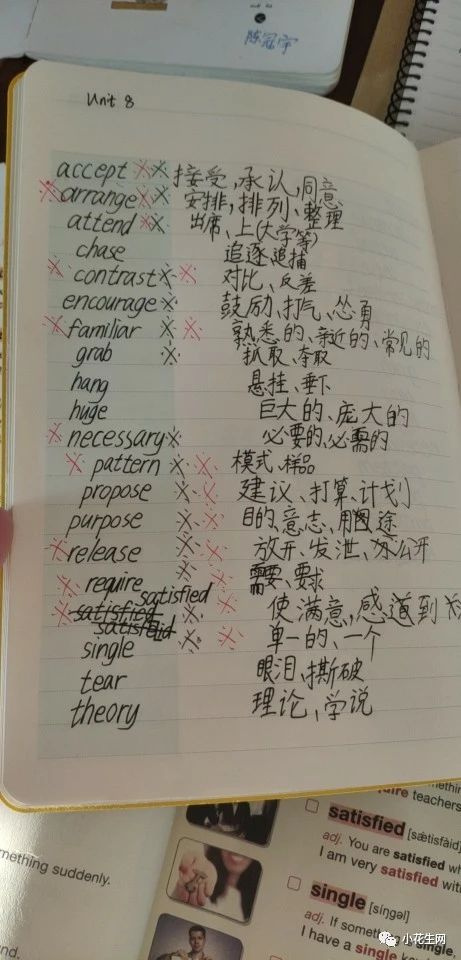 陈冠宇
Unit 8
accept ※※ 接受,承认,同意
※arrange※※ 安排,排列、整理
attend※※ 出席、上(大学等)
chase 追逐,追捕
※contrast※※ 对比、反差
encourage※ 鼓励、打气、怂勇
※familiar※※ 熟悉的、亲近的、常见的
grab ※ 抓取、夺取
hang 悬挂、垂下
huge 巨大的、庞大的
※necessary※ 必要的、必需的
※pattern※※ 模式、样品
propose ※※ 建议、打算、计划
purpose ※※ 目的、意志、用途
※release ※※ 放开、发泄、公开
※require ※※ 需要、要求
※satisfied satisfied ※ 使满意,感道到
satisfeid
single ※※ 单一的、一个
tear 眼泪、撕破
theory 理论、学说
teachers
satisfied [sǽtisfàid]
adj. You are satisfied
I am very satisfied
single [síŋgəl]
adj. If something
I have a single
mething suddenly.
nd.
小花生网